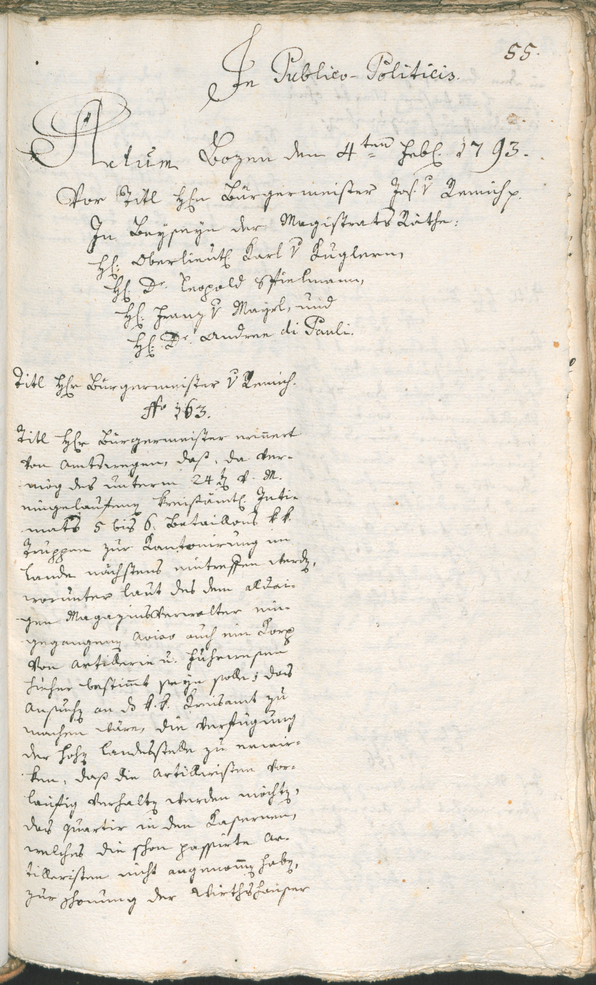 55.
In Publico-Politicis.
Actum Bozen den 4ten Febr. 1793.
Vor Titl Hrn Bürgermeister Jos. v Remich p.
In Beyseyn der Magistrats Räthe:
H: Oberlieut. Karl v Kuglern,
H: Dr. Leopold Spielmann,
H: Franz v Mayrl, und
H: Dr. Andree di Pauli.
Titl Hr Bürgermeister v Remich.
No 163.
Titl Hr Bürgermeister erinnert
von Amtswegen, daß, da ver-
mög des unterm 24ten v. M.
eingelaufenen kreisämtl. Inti-
mats 5 bis 6 Bataillons k k
Truppen zur Kantonirung im
Lande nächstens eintreffen werden,
worunter laut des dem allhie-
gen Magazinsverwalter ein-
gegangenen Aviso auch ein Korp
von Artillerie u. Fuhrwesen
hieher bestimmt seyn solle; das
Ansuchen an d k. k. Kreisamt zu
machen wäre, die Verfügung
der hohen Landesstelle zu erwir-
ken, daß die Artilleristen vor-
läufig verhalten werden möchten,
das Quartir in den Kasernen,
welches die schon passirte Ar-
tilleristen nicht angenommen haben,
zur Schonung der Wirthshäuser